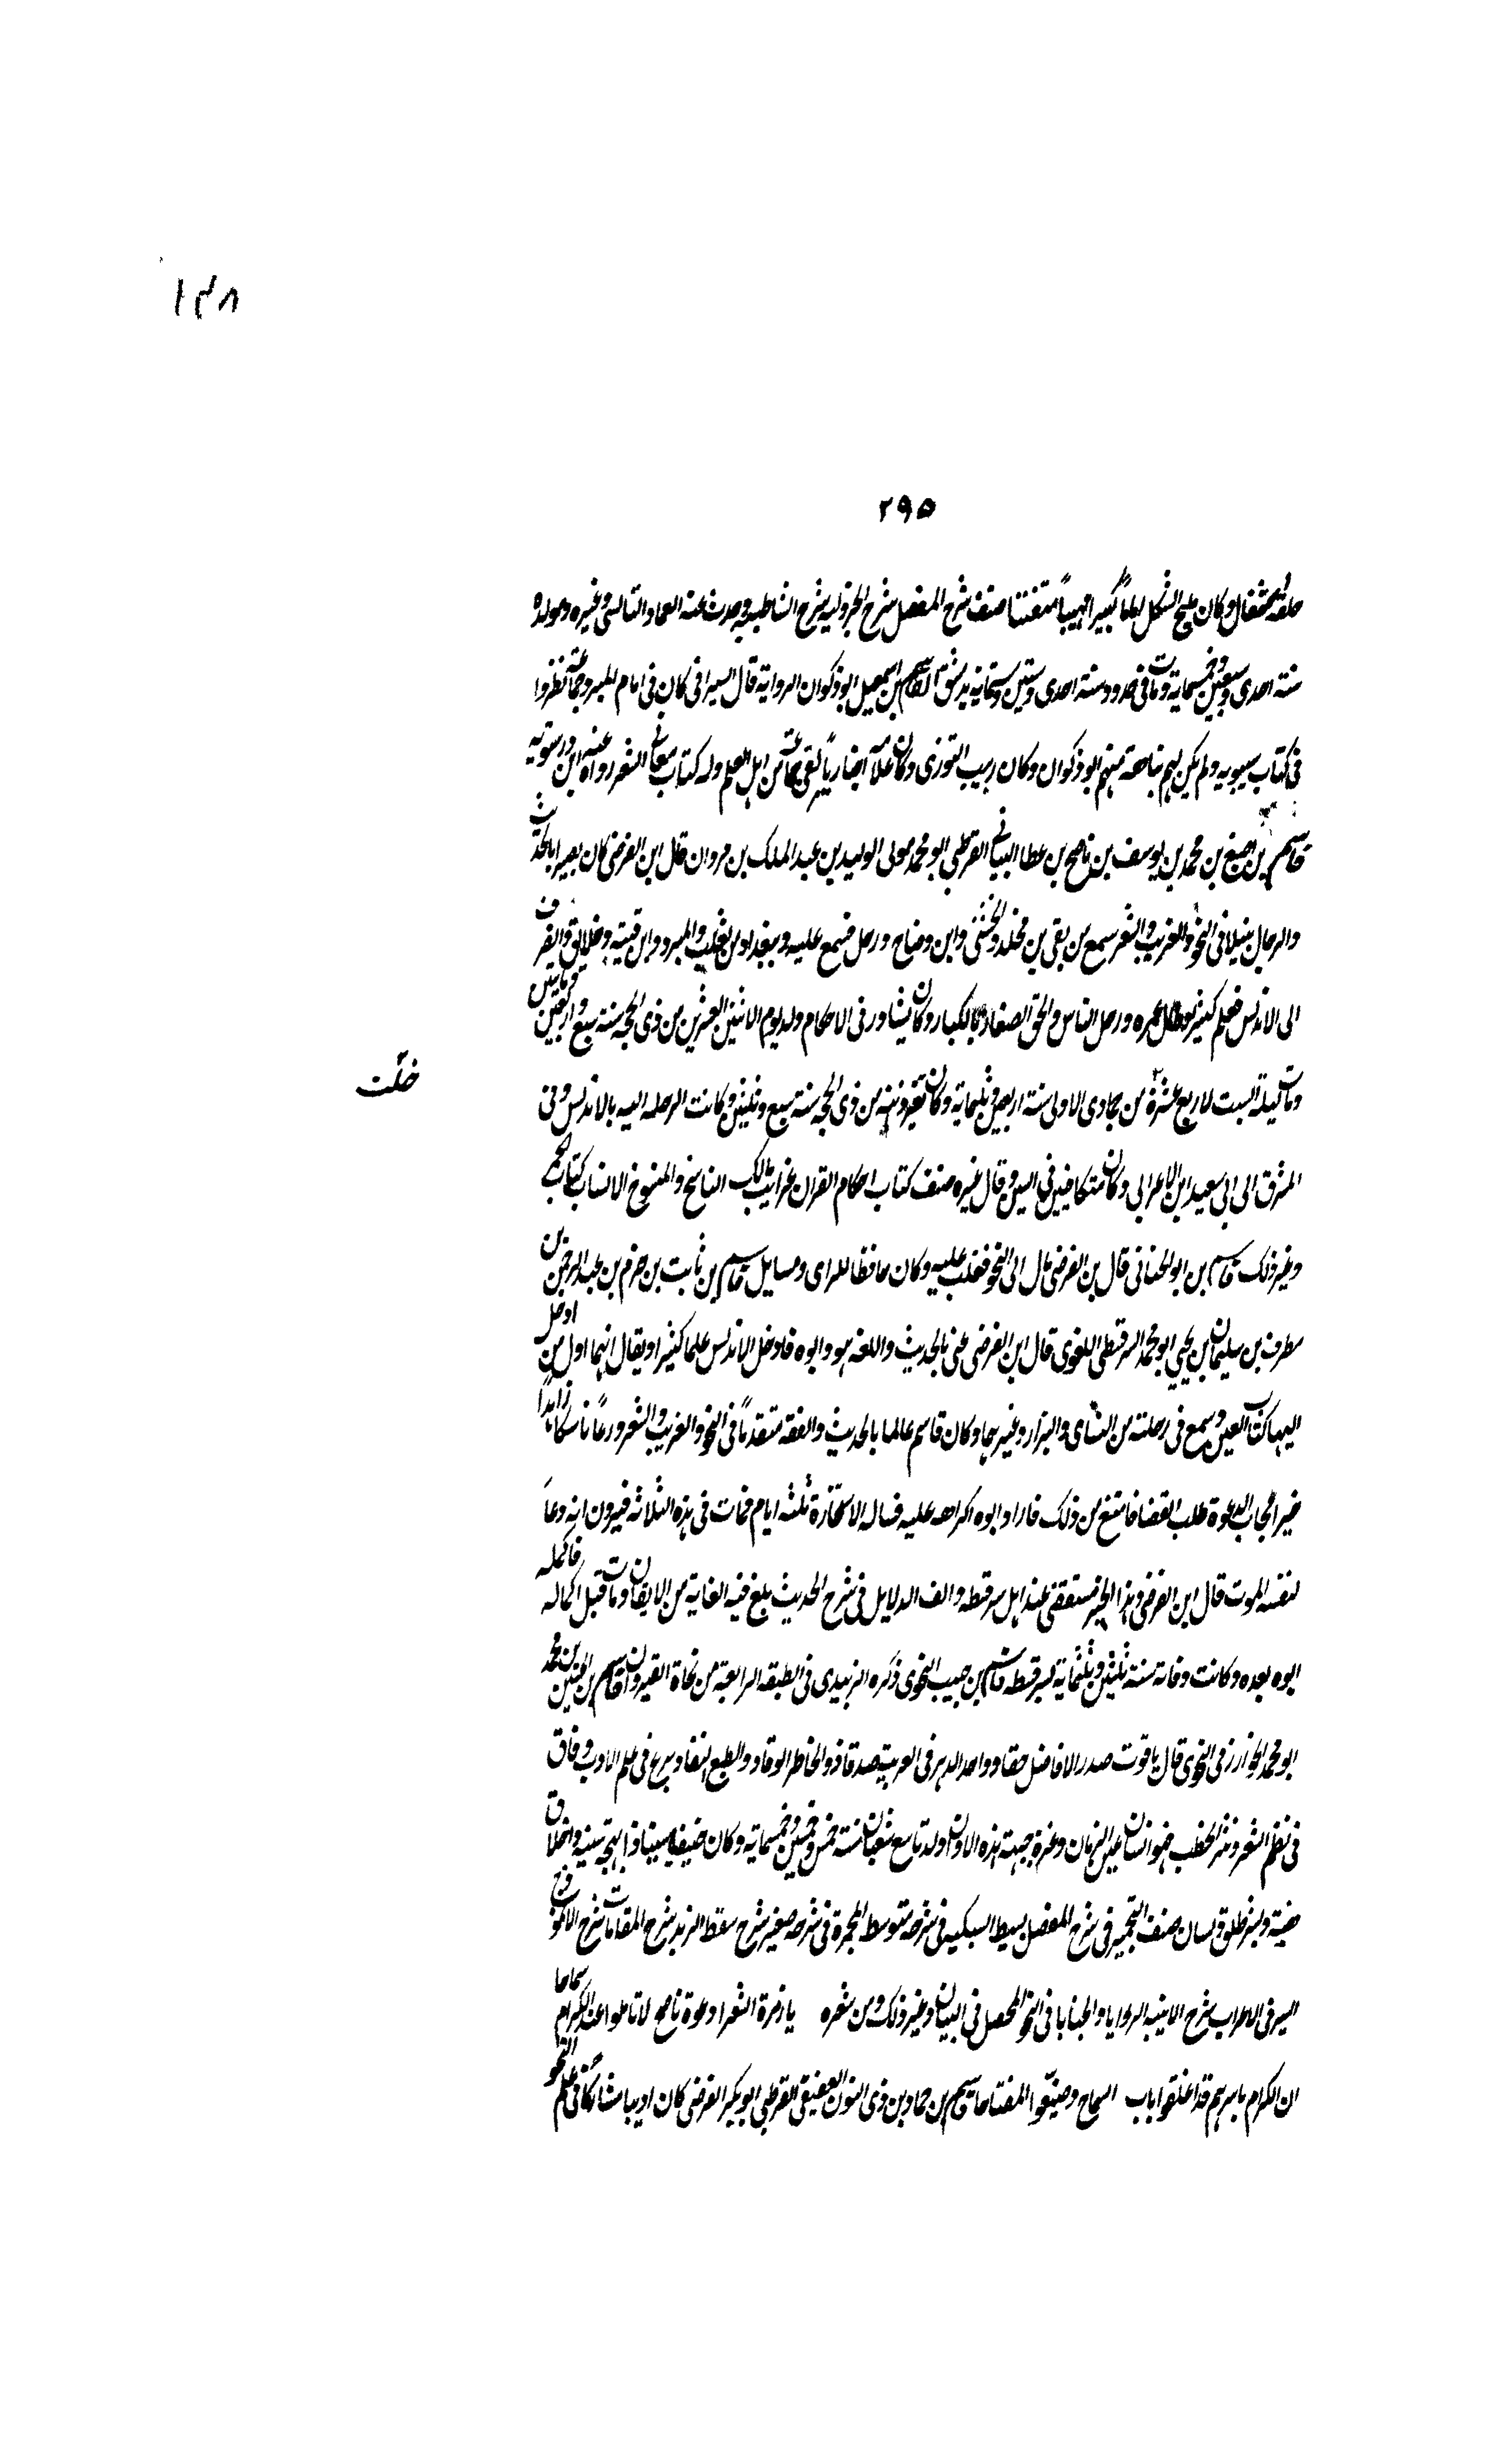 ١٣٨
٢٩٥
حلقة اشتغال وكان مليح الشكل اماما كبيرا مهيبا متفننا صنف شرح المفصل شرح الجزولية شرح الشاطبية وحدث عنه العماد البالسى وغيره ومولده
سنة احدى وسبعين وخمسماية ومات فى حدود سنة احدى وستين وستماية بدمشق القاسم بن اسمعيل ابو ذكوان الراوية قال السيرافى كان فى ايام المبرد جماعة نظروا
فى كتاب سيبويه ولم يكن لهم نباهة منهم ابو ذكوان وكان ربيب التوزى وكان علامة اخباريا لقى جماعة من اهل العلم وله كتاب معانى الشعر رواه عنه ابن درستويه
قاسم بن اصبغ بن محمد بن يوسف بن ناصح بن عطا البيانى القرطبى ابو محمد مولى الوليد بن عبد الملك بن مروان قال ابن الفرضى كان بصيرا بالحديث
والرجال نبيلا فى النحو والغريب والشعر سمع من بقى بن مخلد والخشنى وابن وضاح ورحل فسمع عليه وببغداد من ثعلب والمبرد وابن قتيبة وخلايق وانصرف
الى الاندلس بعلم كثير وطال عمره ورحل الناس والحق الصغار بالكبار وكان يشاور فى الاحكام ولد يوم الاثنين العشرين من ذى الحجة سنة سبع واربعين ومايتين
ومات ليلة السبت لاربع عشرة من جمادى الاولى سنة اربعين وثلثماية وكان تغير ذهنه من ذى الحجة سنة سبع وثلثين وكانت الرحلة اليه بالاندلس وفى
خلت
المشرق الى ابى سعيد ابن الاعرابى وكان متكافيين فى السن وقال غيره صنف كتاب احكام القران غرايب مالك الناسخ والمنسوخ الانساب كتاب
وغير ذلك قاسم بن ابو الحنانى قال بن الفرضى مال الى النحو فغلب عليه وكان حافظا للراى ومسايل قاسم بن ثابت بن حزم بن عبد الرحمن بن
مطرف بن سليمان بن يحيى ابو محمد السرقسطى اللغوى قال ابن الفرضى عنى بالحديث واللغة هو وابوه فادخل الاندلس علما كثيرا ويقال انهما اول من ادخل
اليها كتاب العين وسمع فى رحلته من النساى والبزار وغيرهما وكان قاسم عالما بالحديث والفقه متقدما فى النحو والغريب والشعر ورعا ناسكا زاهدا
خيرا مجاب الدعوة طلب للقضا فامتنع من ذلك فاراد ابوه اكراهه عليه فساله الاستخارة ثلثة ايام فمات فى هذه الثلاثة فيرون انه دعا
لنفسه الموت قال ابن الفرضى وهذا الخبر مستفيض عند اهل سرقسطه والف الدلايل فى شرح الحديث بلغ فيه الغاية من الاتقان ومات قبل اكماله فاكمله
ابوه بعده وكانت وفاته سنة ثلثين وثلثماية بسرقسطه قاسم بن حبيب النحوى ذكره الزبيدى فى الطبقة الرابعة من نحاة القيروان القاسم بن الحسين بن محمد
ابو محمد الخوارزمى النحوى قال ياقوت صدر الافاضل حقا وواحد الدهر فى العربية صدقا ذو الخاطر الوقاد والطبع النقاد برع فى علم الادب وفاق
فى نظم الشعر ونثر الخطب فهو انسان عين الزمان وغرة جبهة هذه الاوان ولد تاسع شعبان سنة خمس وخمسين وخمسماية وكان حنيفيا سنيا ذا بهجة سنية واخلاق
هنية وبشر طلق ولسان صنف التجمير فى شرح المفصل بسيط السبيكة فى شرحه متوسط المجمرة فى شرحه صغير شرح سقط الزند شرح المقامات شرح الانموذج
السر فى الاعراب شرح الابنية الزوايا والخبايا فى النحو المحصل فى البيان وغير ذلك ومن شعره يا زمرة الشعرا دعوة ناصح لا تاملوا عند الكرام سماحا
ان الكرام باسرهم قد اغلقوا باب السماح وضيعوا المفتاحا قاسم بن حماد بن ذى النون العتيقى القرطبى ابو بكر الفرضى كان اديبا مشاركا فى علم النحو